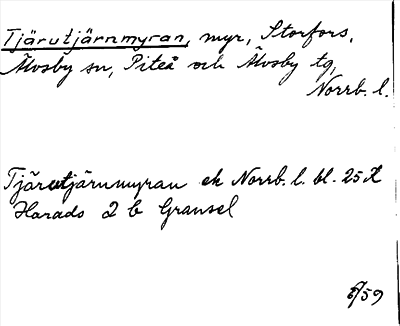 Tjärutjärnmyran, myr, Storfors,
Älvsby sn, Piteå och Älvsby tg,
Norrb. l.
Tjärutjärnmyran ek Norrb. l. bl. 25
Harads 2 b Gransel
/59